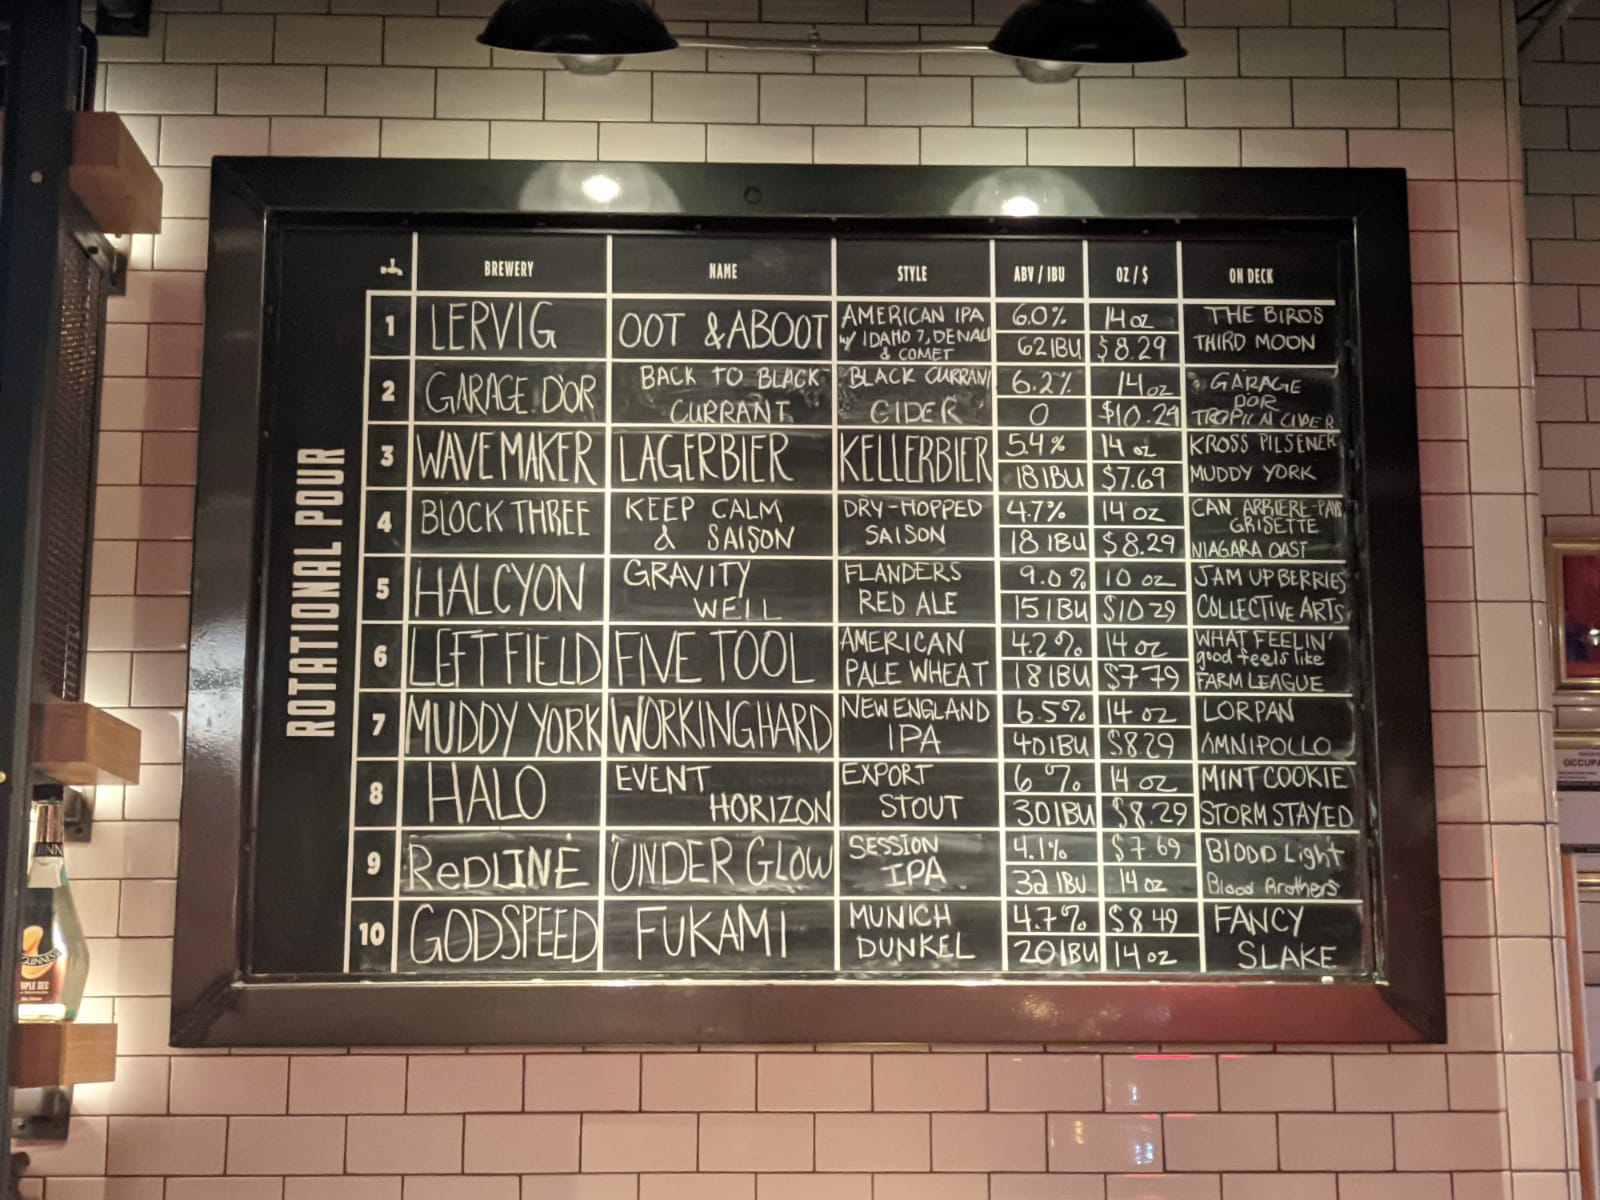 ROTATIONAL POUR
BREWERY NAME STYLE ABV / IBU OZ / $ ON DECK
1 LERVIG OOT & ABOOT AMERICAN IPA w/ IDAHO 7, DENALI & COMET 6.0% 62 IBU 14 oz $8.29 THE BIRDS THIRD MOON
2 GARAGE D'OR BACK TO BLACK CURRANT BLACK CURRANT CIDER 6.2% 0 14 oz $10.29 GARAGE D'OR CIDER
3 WAVE MAKER LAGERBIER KELLERBIER 5.4% 18 IBU 14 oz $7.69 KROSS PILSENER MUDDY YORK
4 BLOCK THREE KEEP CALM & SAISON DRY-HOPPED SAISON 4.7% 18 IBU 14 oz $8.29 CAN ARRIERE-PAYS GRISETTE NIAGARA OAST
5 HALCYON GRAVITY WELL FLANDERS RED ALE 9.0% 15 IBU 10 oz $10.29 JAM UP BERRIES COLLECTIVE ARTS
6 LEFT FIELD FIVE TOOL AMERICAN PALE WHEAT 4.2% 18 IBU 14 oz $7.79 WHAT FEELIN' good feels like FARM LEAGUE
7 MUDDY YORK WORKING HARD NEW ENGLAND IPA 6.5% 40 IBU 14 oz $8.29 LORPAN OMNIPOLLO
8 HALO EVENT HORIZON EXPORT STOUT 6% 30 IBU 14 oz $8.29 MINT COOKIE STORM STAYED
9 ReDLINE UNDER GLOW SESSION IPA 4.1% 32 IBU $7.69 14 oz BLOOD Light Blood Brothers
10 GODSPEED FUKAMI MUNICH DUNKEL 4.7% 20 IBU $8.49 14 oz FANCY SLAKE
GUINNESS